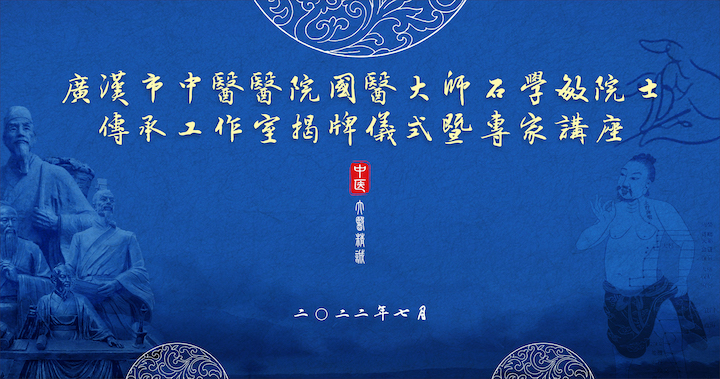 廣漢市中醫醫院國醫大師石學敏院士
傳承工作室揭牌儀式暨專家講座
中医
大醫精誠
二〇二二年七月